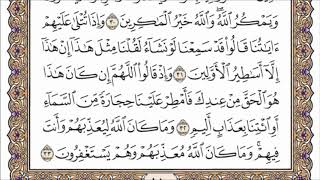 وَيَمْكُرُ ٱللَّهُ وَٱللَّهُ خَيْرُ ٱلْمَٰكِرِينَ ٣٠ وَإِذَا تُتْلَىٰ عَلَيْهِمْ
ءَايَٰتُنَا قَالُوا۟ قَدْ سَمِعْنَا لَوْ نَشَآءُ لَقُلْنَا مِثْلَ هَٰذَآ إِنْ هَٰذَآ
إِلَّآ أَسَٰطِيرُ ٱلْأَوَّلِينَ ٣١ وَإِذْ قَالُوا۟ ٱللَّهُمَّ إِن كَانَ هَٰذَا
هُوَ ٱلْحَقَّ مِنْ عِندِكَ فَأَمْطِرْ عَلَيْنَا حِجَارَةً مِّنَ ٱلسَّمَآءِ
أَوِ ٱئْتِنَا بِعَذَابٍ أَلِيمٍ ٣٢ وَمَا كَانَ ٱللَّهُ لِيُعَذِّبَهُمْ وَأَنتَ
فِيهِمْ ۚ وَمَا كَانَ ٱللَّهُ مُعَذِّبَهُمْ وَهُمْ يَسْتَغْفِرُونَ ٣٣